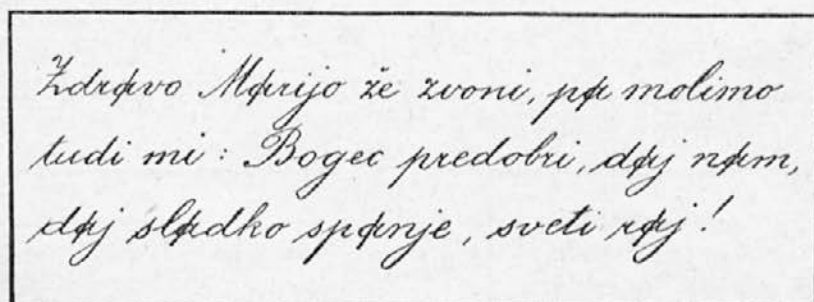 Zdravo Marijo že zvoni, pa molimo
tudi mi: Bogec predobri, daj nam,
daj sladko spanje, sveti raj!